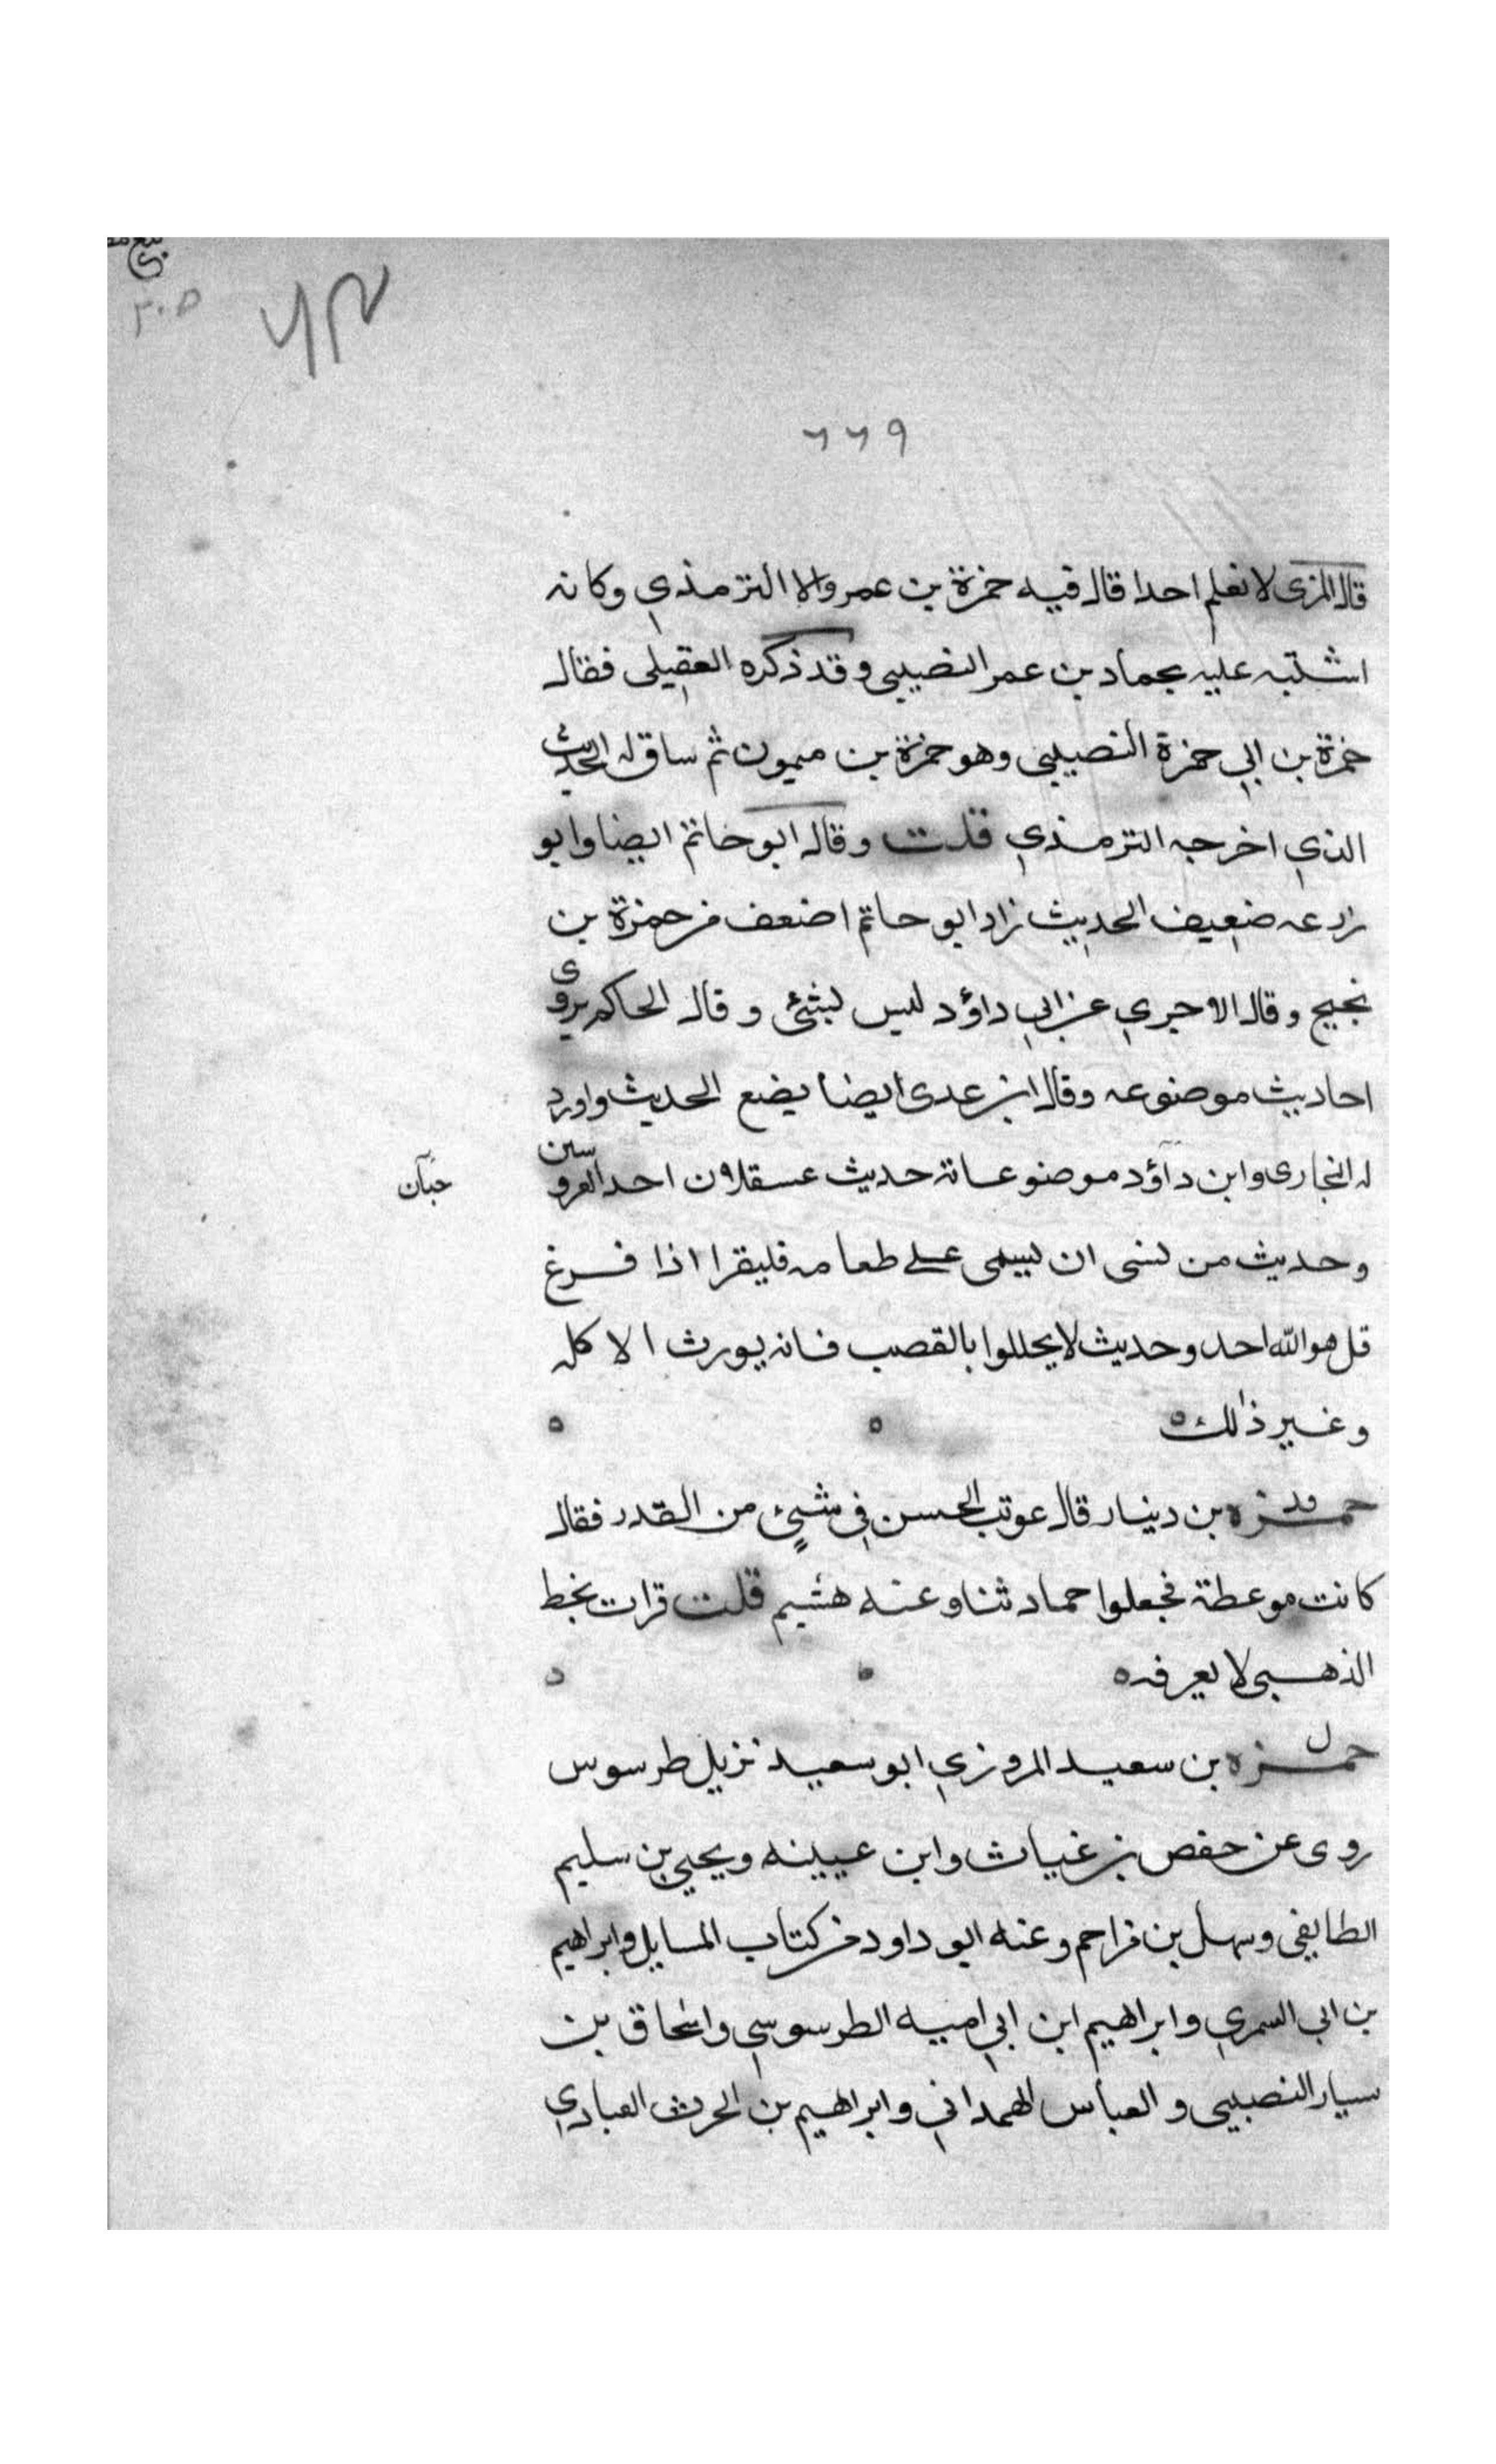 ٢٠٥
٦٦٩
قال المزي لا نعلم احدا قال فيه حمزة بن عمرو الا الترمذي وكانه
اشتبه عليه بحماد بن عمر النصيبي وقد ذكره العقيلى فقال
حمزة بن ابي حمزة النصيبي وهو حمزة بن ميمون ثم ساق له الحديث
الذي اخرجه الترمذي قلت وقال ابو حاتم ايضا وابو
زرعه ضعيف الحديث زاد ابو حاتم اضعف من حمزة بن
نجيح وقال الاجري عن ابي داؤد ليس بشئ وقال الحاكم يروى
احاديث موضوعه وقال ابن عدى ايضا يضع الحديث واورد
له البخارى وابن داؤد موضوعاتة حديث عسقلان احد العروسين
حبان
وحديث من نسى ان يسمى على طعامه فليقرا اذا فرغ
قل هو الله احد وحديث لا يحللوا بالقصب فانه يورث الاكله
وغير ذلك ه ه ه
حمزه بن دينار قال عوتب الحسن في شيئ من القدر فقال
قد
كانت موعظة فجعلوا حماد ثنا وعنه هشيم قلت قرات بخط
الذهبى لا يعرف ه
حمزه بن سعيد المروزي ابو سعيد نزيل طرسوس
ل
روى عن حفص بن غياث وابن عيينه ويحيي بن سليم
الطايفى وسهل بن مزاحم وعنه ابو داود في كتاب المسايل وابراهيم
بن ابي السري وابراهيم ابن ابي اميه الطرسوسي واسحاق بن
سيار النصيبى والعباس الهمداني وابراهيم بن الحرث العبادي